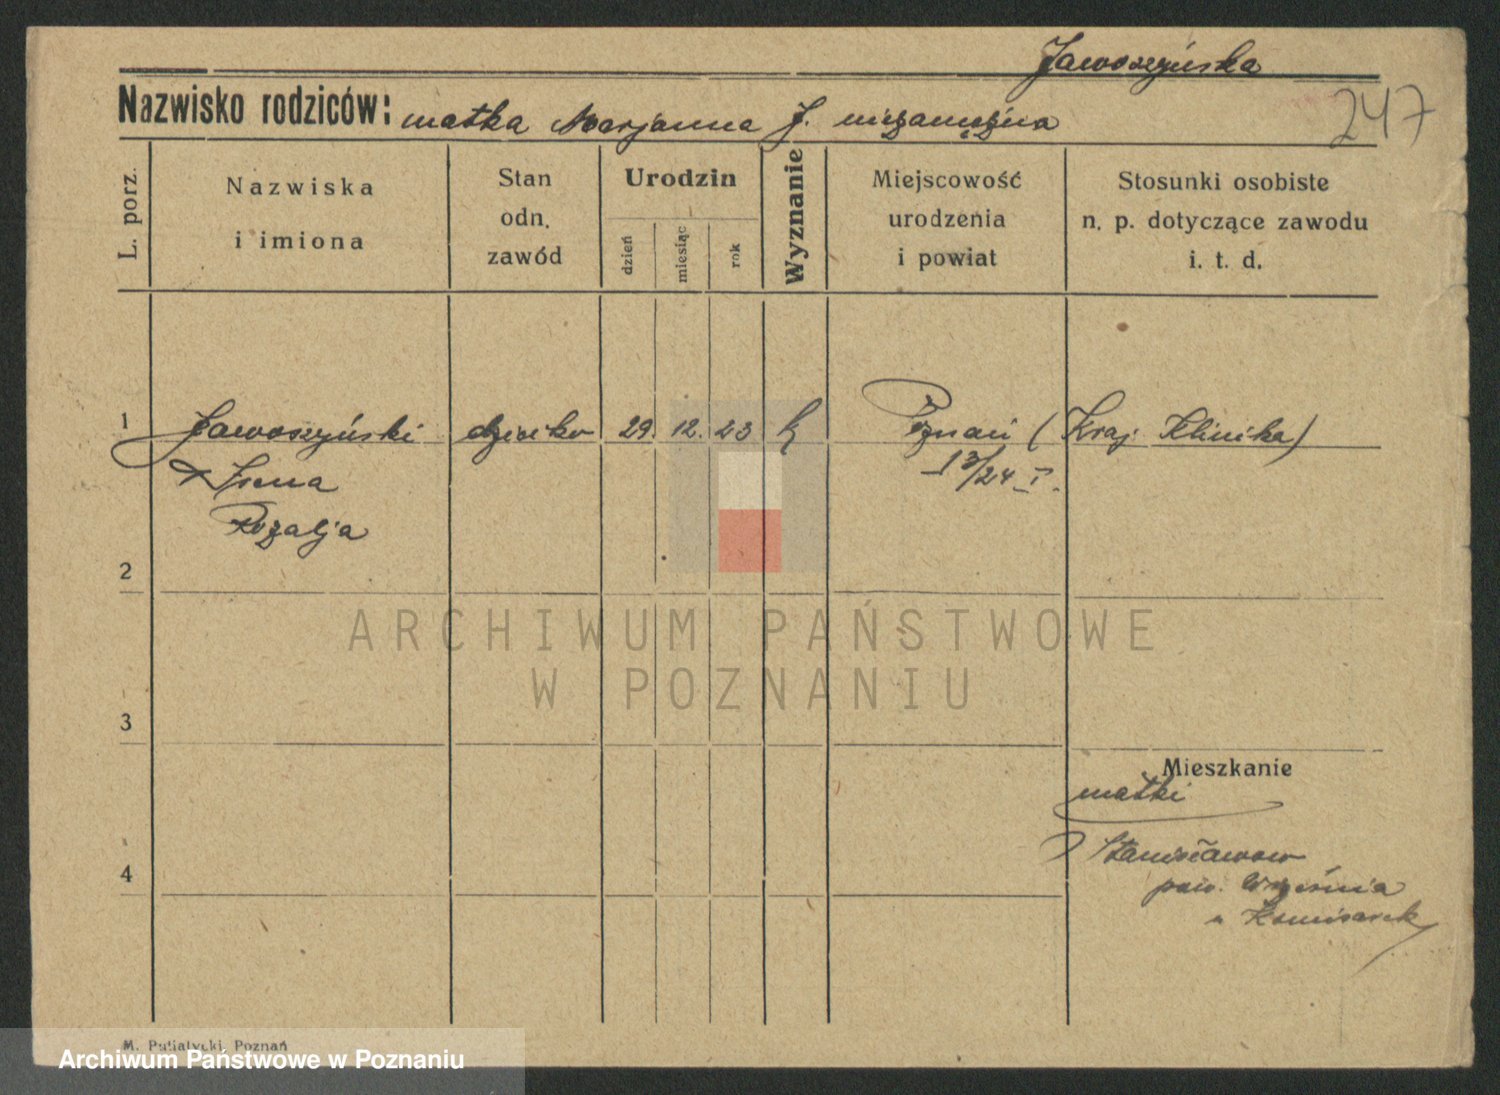 Jawoszyńska
247
Nazwisko rodziców: matka Marjanna J. niezamężna
L. porz.
Nazwiska i imiona
Stan odn. zawód
Urodzin
dzień
miesiąc
rok
Wyznanie
Miejscowość urodzenia i powiat
Stosunki osobiste n. p. dotyczące zawodu i. t. d.
1 Jawoszyński dziecko 29. 12. 23 k Poznań (Kraj. Klinika)
Irena 1 3/24 I.
Rozalja
2
3
Mieszkanie
matki
Stanisławowo
4
pow. Września
u Komisarek
ARCHIWUM PAŃSTWOWE
W POZNANIU
M. Putiatycki, Poznań
Archiwum Państwowe w Poznaniu